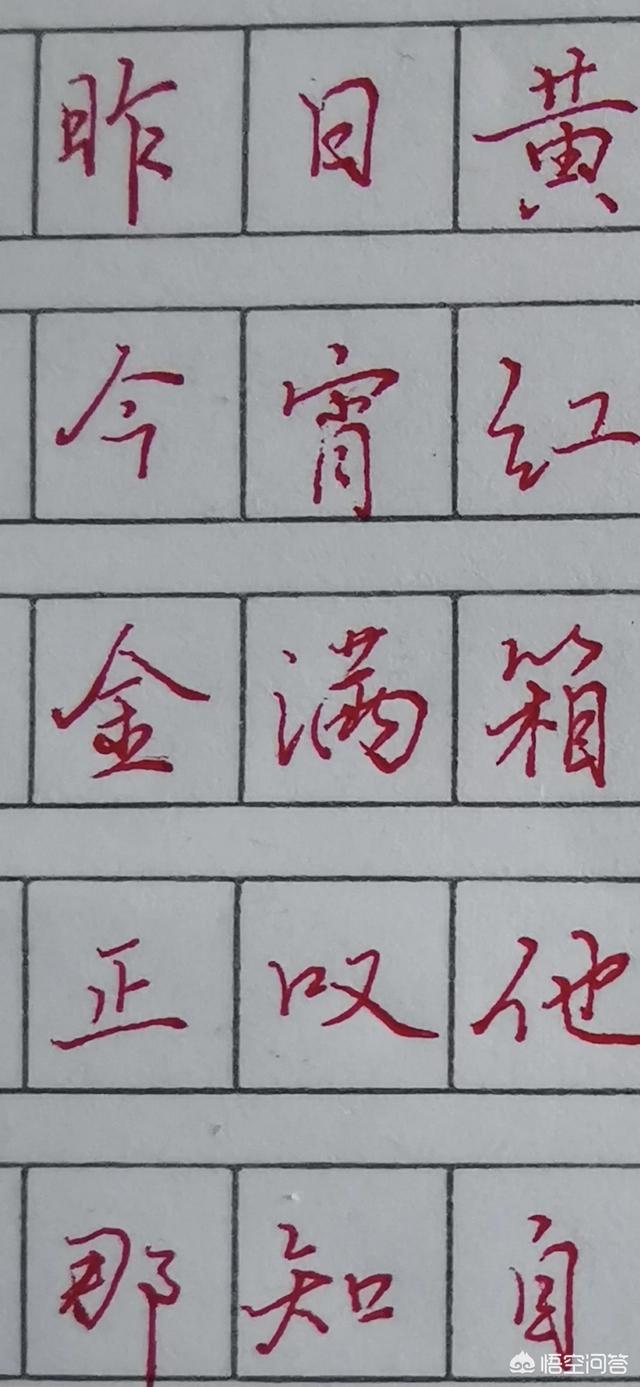 昨日黄
今宵红
金满箱
正叹他
那知自
悟空问答